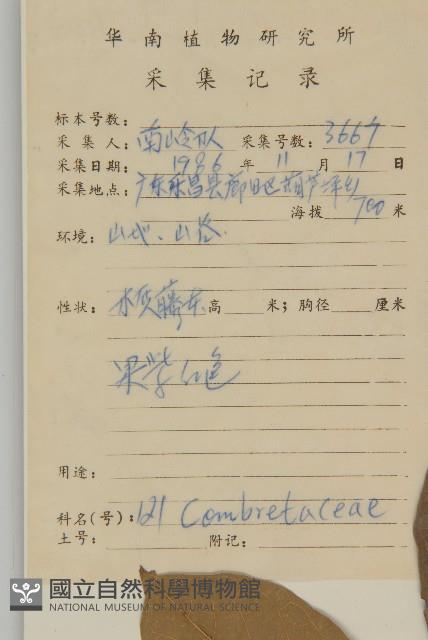 华南植物研究所
采集记录
标本号数:
采集人: 南岭队 采集号数: 3667
采集日期: 1986 年 11 月 17 日
采集地点: 广东乐昌县廊田区葫芦坪乡
海拨 700 米
环境: 山地、山谷.
性状: 木质藤本 高 米; 胸径 厘米
果紫红色
用途:
科名(号): 121 Combretaceae
土号: 附记:
國立自然科學博物館
NATIONAL MUSEUM OF NATURAL SCIENCE